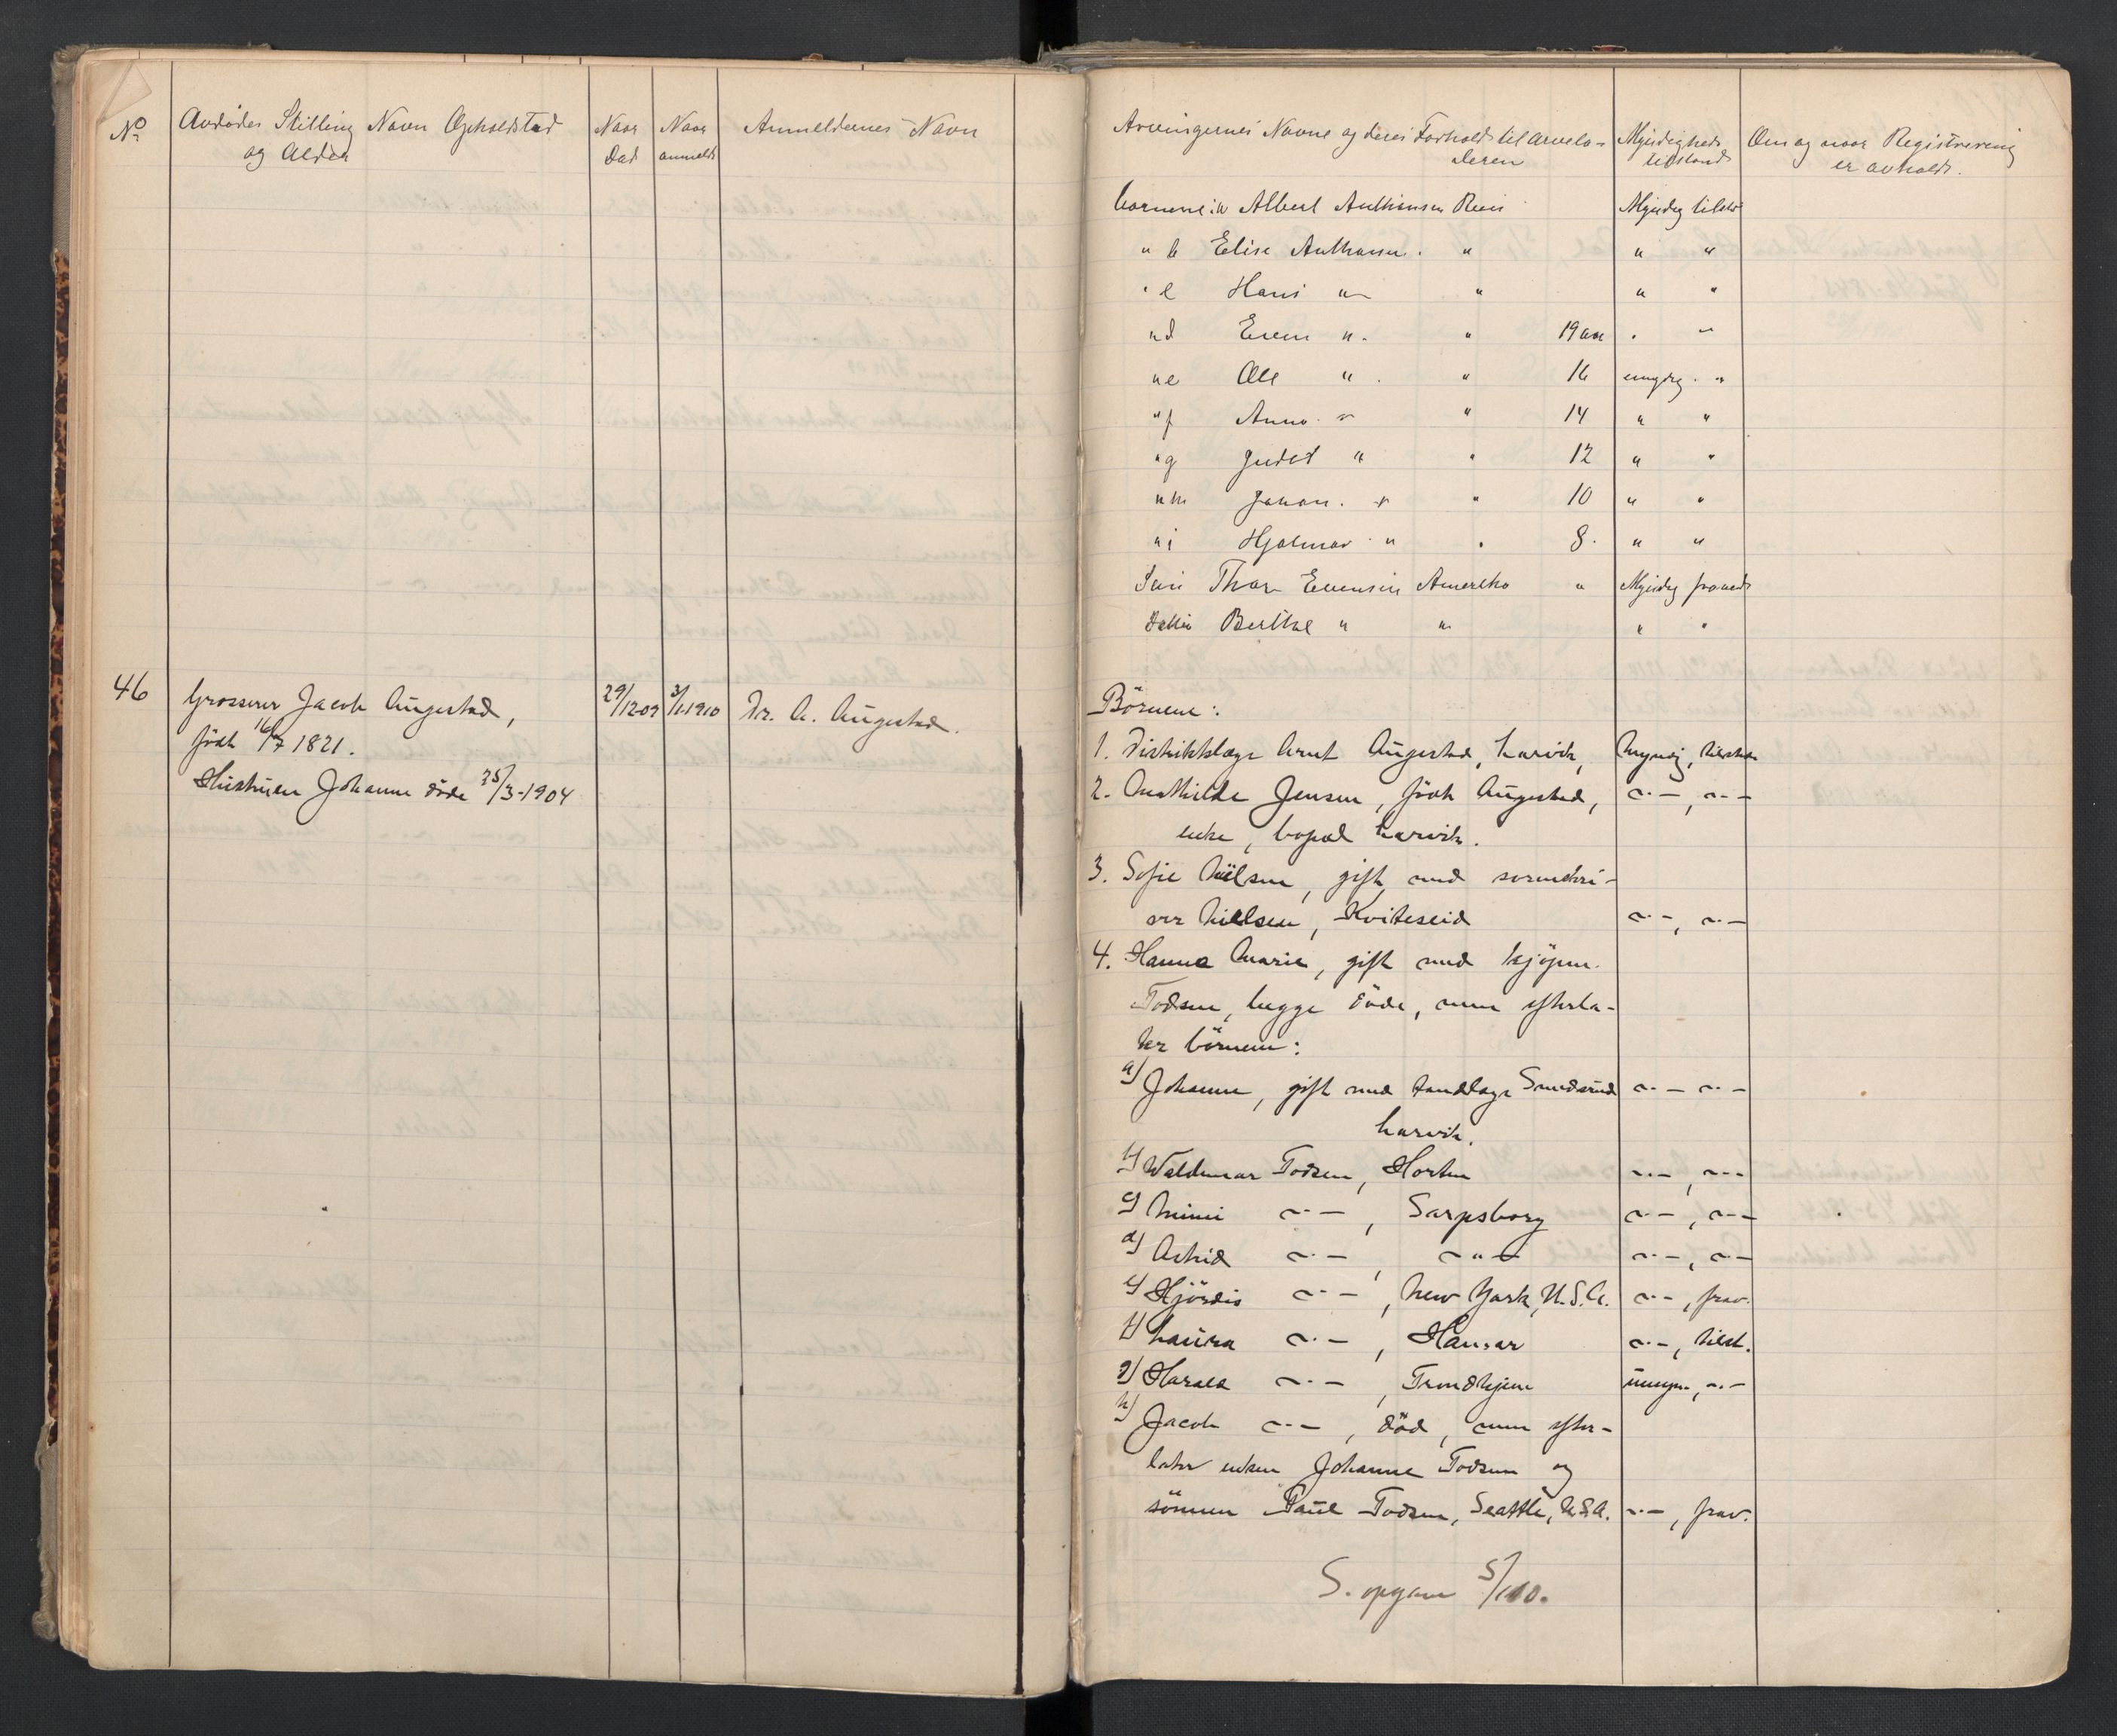 No Avdødes Stilling Navn Opholdsted og Alder
Naar Død
Naar anmeldt
Anmeldernes Navn
Arvingernes Navne og deres Forhold til Arvela-
deren
Myndigheds tilstand
Om og naar Registrering
er avholdt.
Albert Anthonsen Myndig tilst
" b Elise Anthonsen " " "
" c Hans " " " "
" d Even " " 19 aar " "
" e Ole " " 16 umyg. "
" f Anna " " 14 " "
" g " " 12 " "
" h Johan. " " 10 " "
" i Hjalmar " " 8 " "
Thor Evensen Amerika " Myndig fraværd
Datter Berthe " " " "
46 Grosserer Jacob Augestad, 29/12 09 3/1-1910 Dr. A. Augestad.
født 16/7 1821.
Hustruen Johanne døde 25/3-1904
Börnene:
1. Distriktslæge Arnt Augestad, Larvik, Myndig, tilstede
2. Mathilde Jensen, födt Augestad, -"-, -"-
enke, bopæl Larvik.
3. Sofie Nielsen, gift med sorenskri-
ver Nielsen, Kviteseid -"-, -"-
4. Hanna Marie, gift med kjöpm.
Todsen, begge døde, men efterla-
ter börnene:
a) Johanne, gift med tandlæge Sundsrud -"- -"-
Larvik.
b) Waldemar Todsen, Horten -"-, -"-
c) Mimi -"-, Sarpsborg -"-, -"-
d) Astrid -"-, -"- -"-, -"-
e) Hjördis -"-, New York, U.S.A. -"-, frav.
f) Laura -"-, Hamar -"-, tilst.
g) Harald -"-, Trondhjem umyn., -"-
h) Jacob -"-, död, men efter-
later enken Johanne Todsen og
sönnen Paul Todsen, Seattle, U.S.A. -"-, frav.
S. opgave 5/1 10.